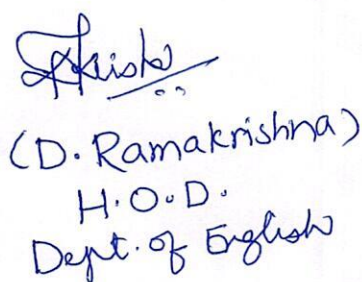 (D. Ramakrishna)
H.O.D.
Dept. of English